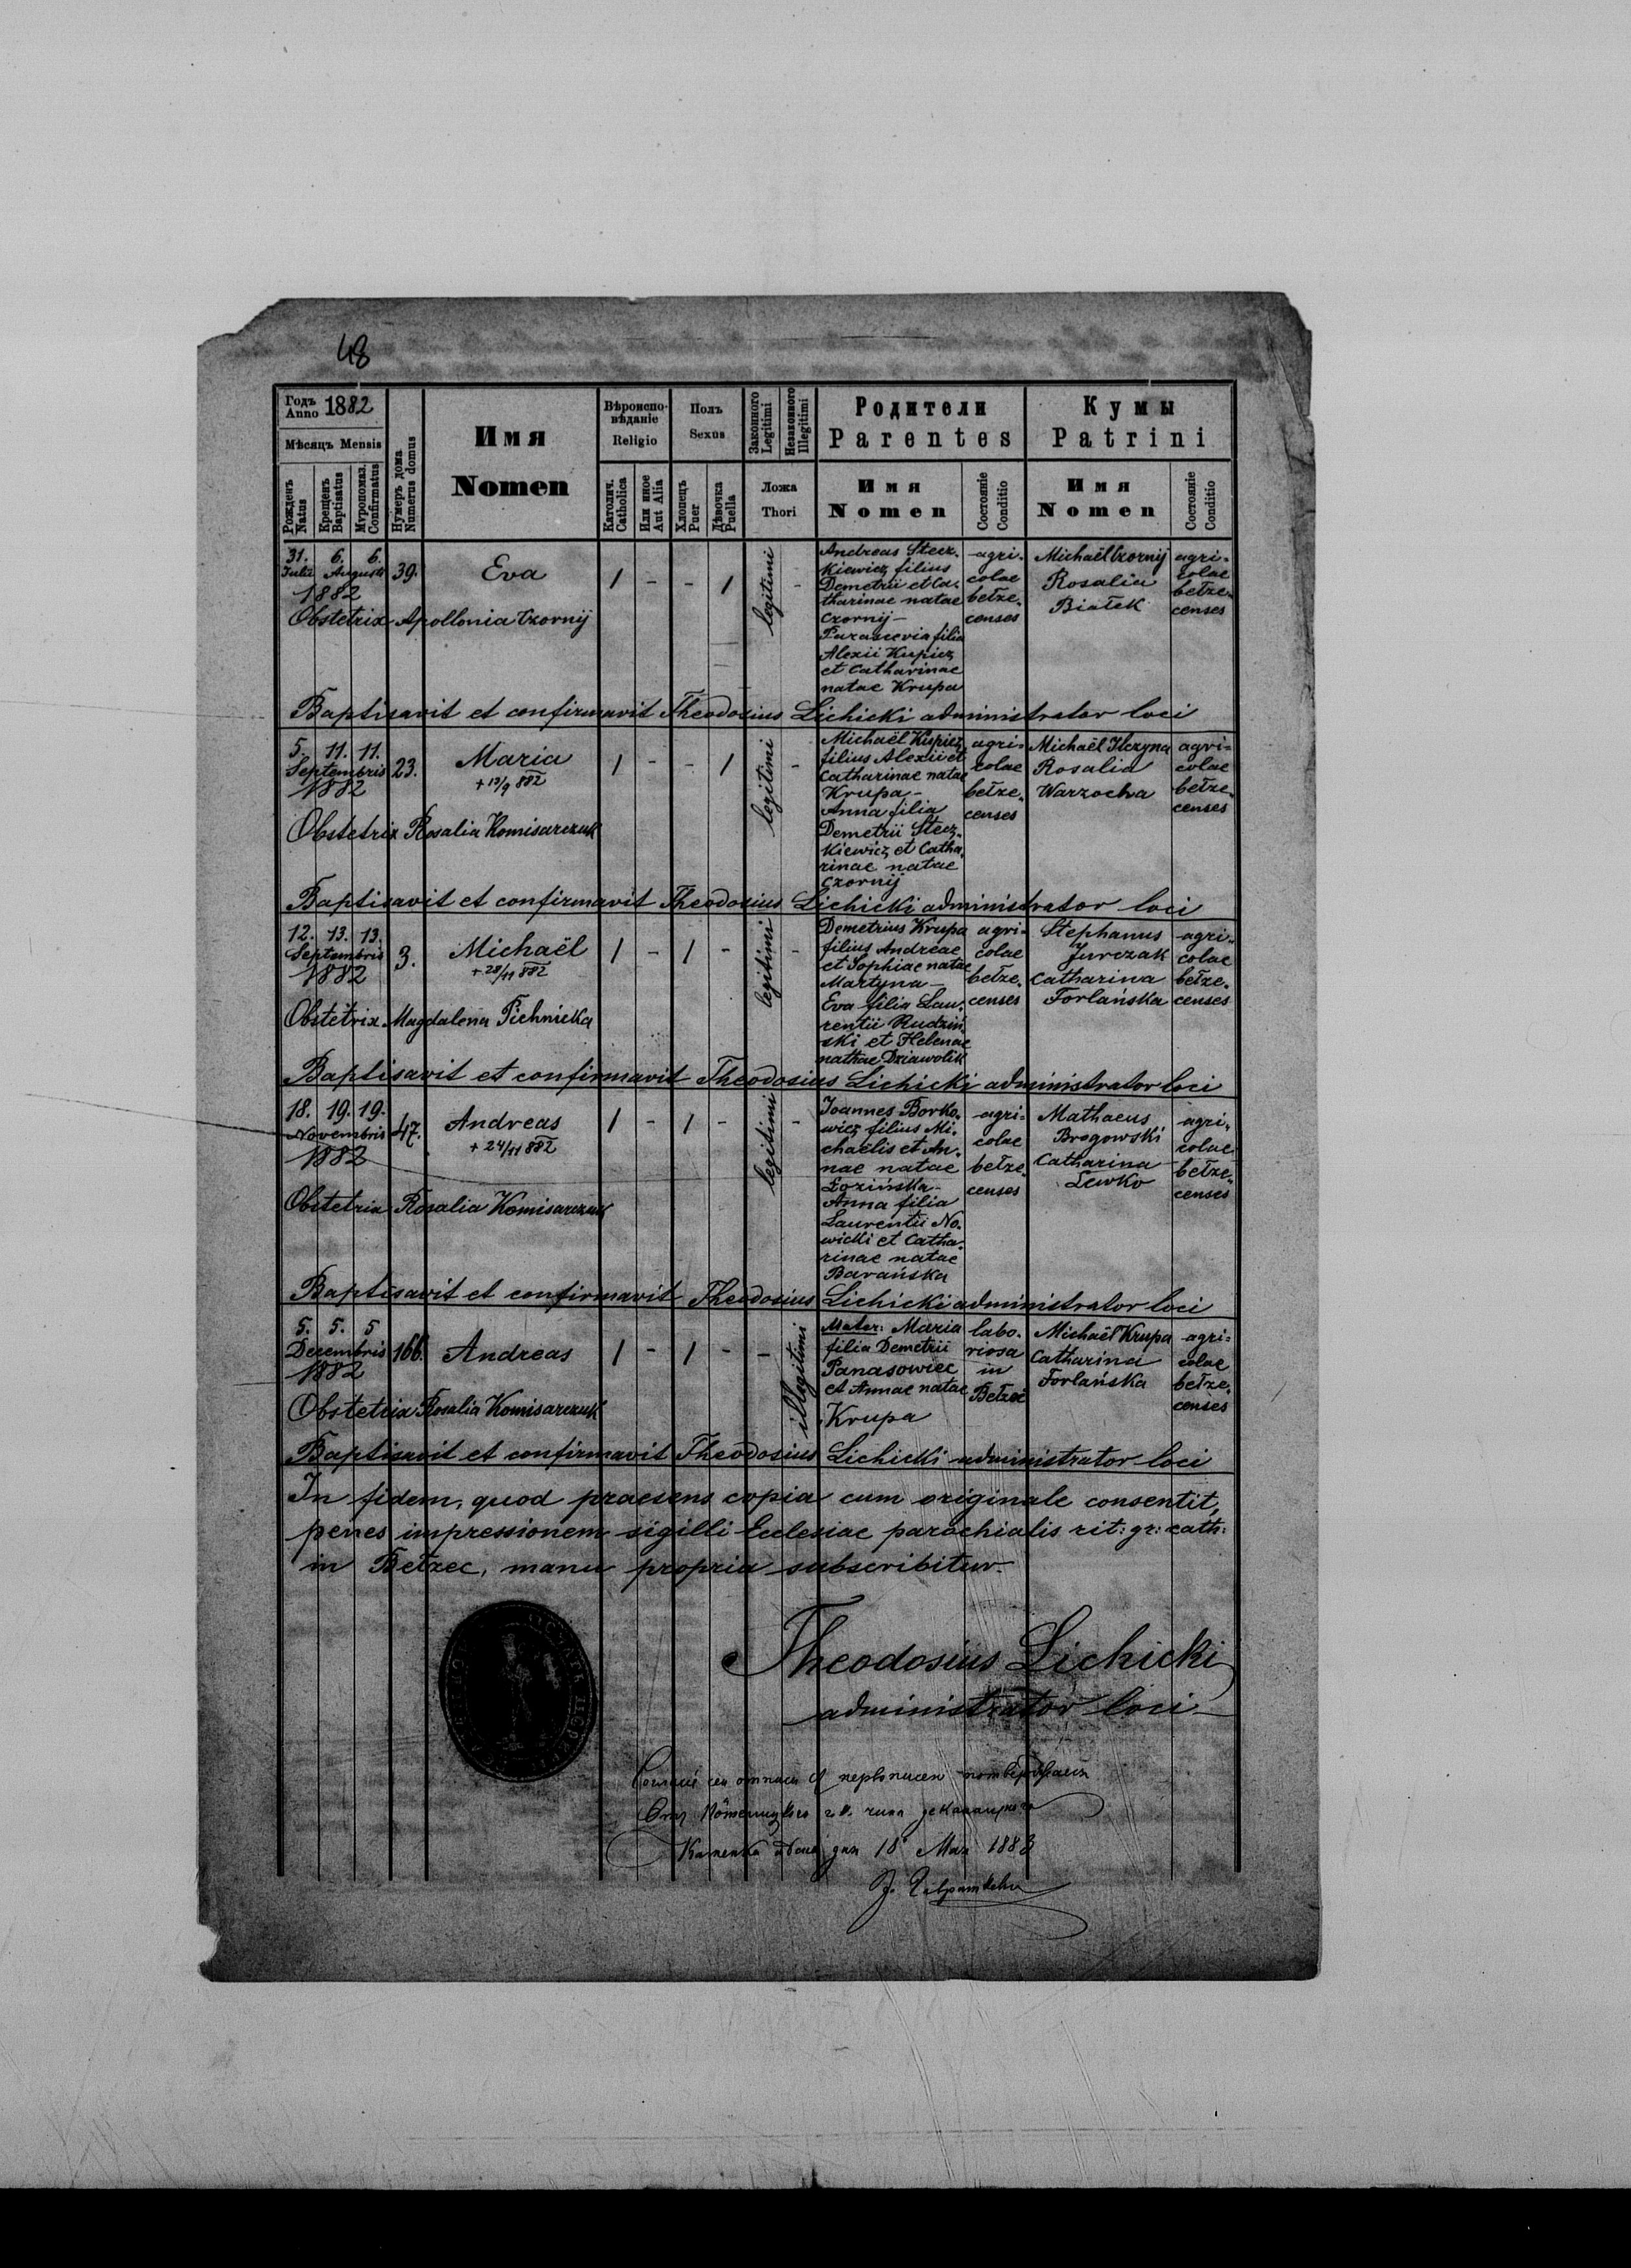 48
Годъ Anno 1882
Мѣсяцъ Mensis
Рожденъ Natus
Крещенъ Baptisatus
Муропомаз. Confirmatus
Нумеръ дома Numerus domus
Имя Nomen
Вѣроиспо-вѣданіе Religio
Католич. Catholica
Или иное Aut Alia
Полъ Sexus
Хлопецъ Puer
Дѣвочка Puella
Законного Legitimi
Незаконного Illegitimi
Ложа Thori
Родители Parentes
Имя Nomen
Состояніе Conditio
Кумы Patrini
Имя Nomen
Состояніе Conditio
31. 6. 6.
Julii Augusti
1882
39.
Eva
1 - - 1
legitimi
-
Andreas Stecz-
kiewicz filius
Demetrii et Ca-
tharinae natae
Czornij -
Parascevia filia
Alexii Kupiec
et Catharinae
natae Krupa
agri-
colae
bełze-
censes
Michaël Czornij
Rosalia
Białek
agri-
colae
bełze-
censes
Obstetrix Apollonia Czornij
Baptisavit et confirmavit Theodosius Lichicki administrator loci
5. 11. 11.
Septembris
1882
23.
Maria
+ 13/9 882
1 - - 1
legitimi
-
Michaël Kupiec
filius Alexii et
Catharinae natae
Krupa -
Anna filia
Demetrii Stecz-
kiewicz et Catha-
rinae natae
Czornij
agri-
colae
bełze-
censes
Michaël Ilczyna
Rosalia
Warzocha
agri-
colae
bełze-
censes
Obstetrix Rosalia Komisarczuk
Baptisavit et confirmavit Theodosius Lichicki administrator loci
12. 13. 13.
Septembris
1882
3.
Michaël
+ 28/11 882
1 - 1 -
legitimi
-
Demetrius Krupa
filius Andreae
et Sophiae natae
Martyna -
Eva filia Lau-
rentii Rudziń-
ski et Helenae
nathae Dziawolik
agri-
colae
bełze-
censes
Stephanus
Jurczak
Catharina
Forlańska
agri-
colae
bełze-
censes
Obstetrix Magdalena Pichnicka
Baptisavit et confirmavit Theodosius Lichicki administrator loci
18. 19. 19.
Novembris
1882
47.
Andreas
+ 24/11 882
1 - 1 -
legitimi
-
Joannes Borko-
wicz filius Mi-
chaëlis et An-
nae natae
Łozińska -
Anna filia
Laurentii No-
wicki et Catha-
rinae natae
Barańska
agri-
colae
bełze-
censes
Mathaeus
Brogowski
Catharina
Lewko
agri-
colae
bełze-
censes
Obstetrix Rosalia Komisarczuk
Baptisavit et confirmavit Theodosius Lichicki administrator loci
5. 5. 5
Decembris
1882
166.
Andreas
1 - 1 - -
illegitimi
Mater: Maria
filia Demetrii
Panasowiec
et Annae natae
Krupa
labo-
riosa
in
Bełzec
Michaël Krupa
Catharina
Forlańska
agri-
colae
bełze-
censes
Obstetrix Rosalia Komisarczuk
Baptisavit et confirmavit Theodosius Lichicki administrator loci
In fidem, quod praesens copia cum originale consentit,
penes impressionem sigilli Ecclesiae parochialis rit: gr: cath:
in Bełzec, manu propria subscribitur.
Theodosius Lichicki
administrator loci
дня 18 Мая 1883